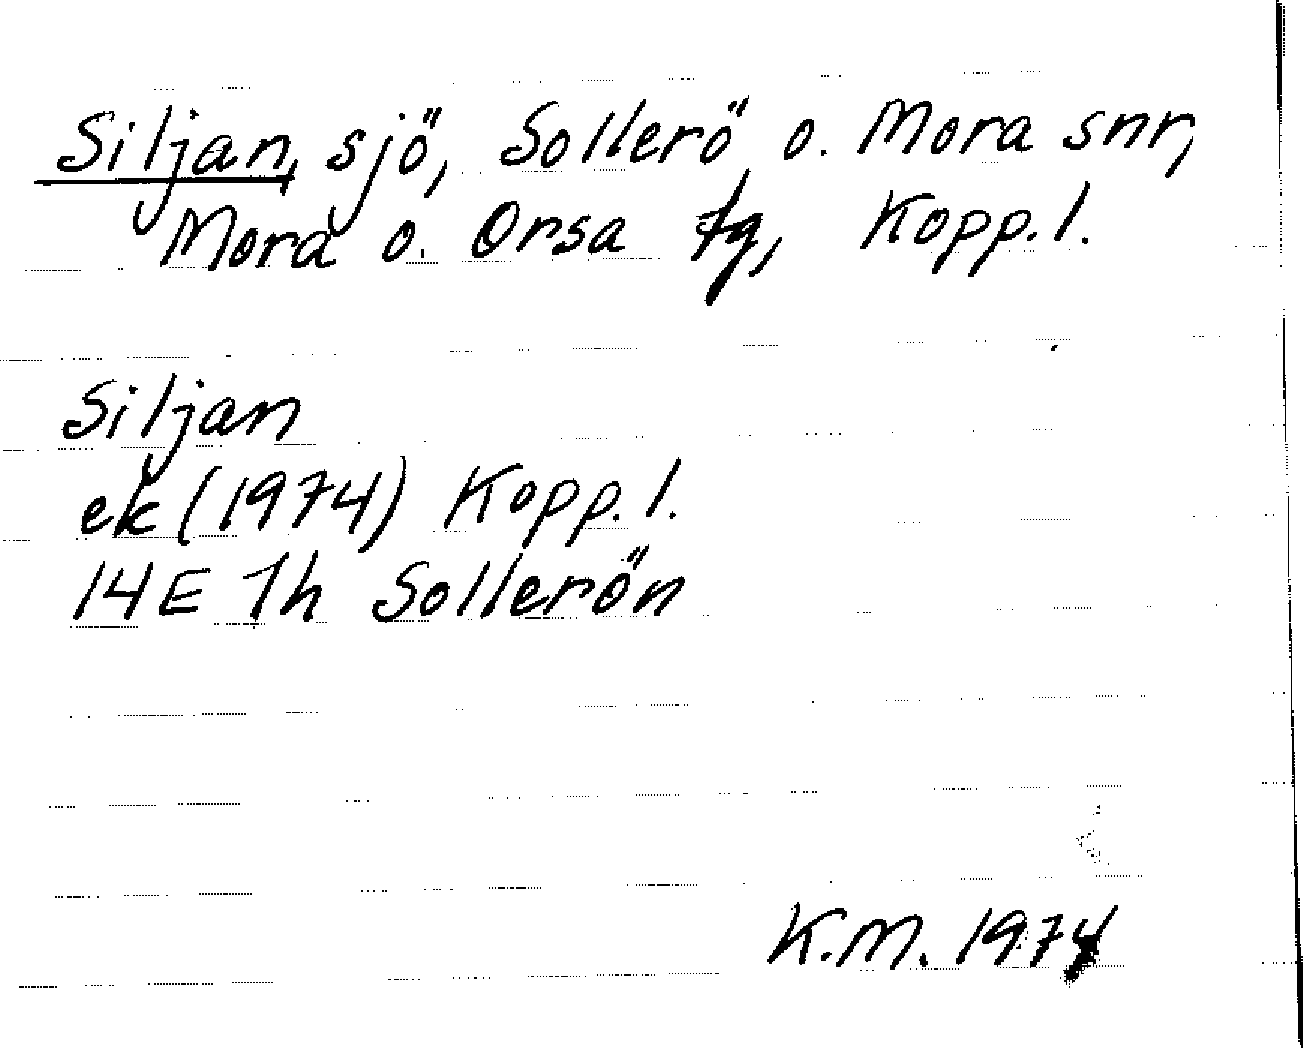 Siljan, sjö, Sollerö o. Mora snr,
Mora o. Orsa tg, Kopp.l.
Siljan
ek (1974) Kopp.l.
14E 1h Sollerön
K.M. 1974